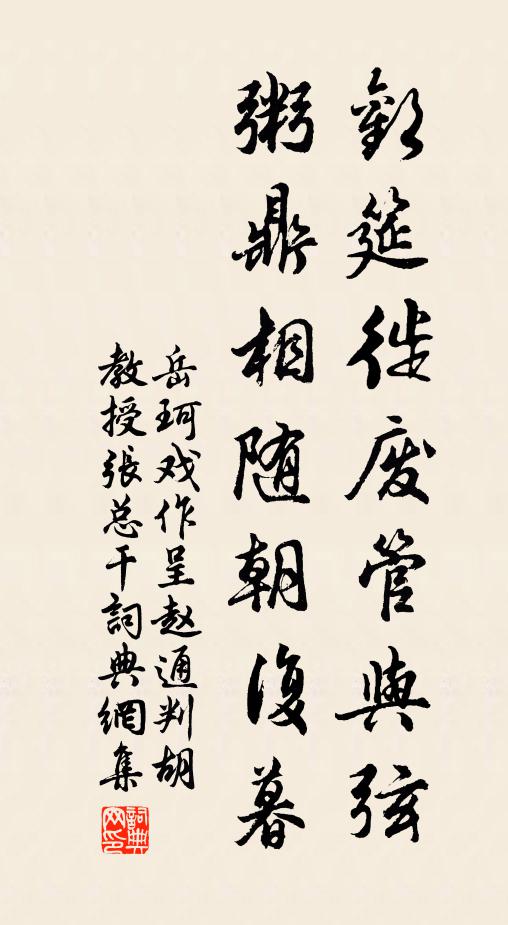 歡筵徙廢管與弦
粥鼎相随朝復暮
岳珂戏作呈赵通判胡
教授張总干詞典網集
詞典网印